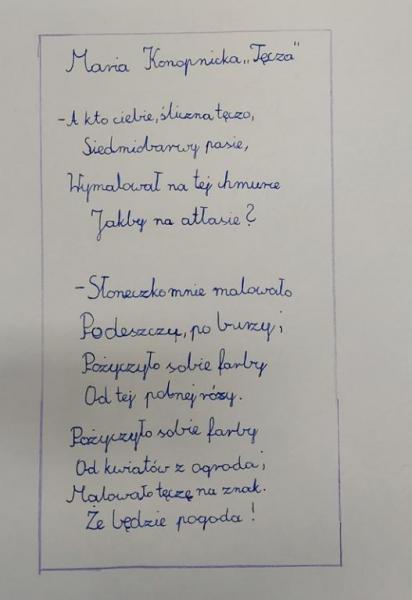 Maria Konopnicka „Tęcza"
- A kto ciebie, śliczna tęczo,
Siedmiobarwy pasie,
Wymalował na tej chmurce
Jakby na atłasie?
- Słoneczko mnie malowało
Po deszczu, po burzy;
Pożyczyło sobie farby
Od tej polnej róży.
Pożyczyło sobie farby
Od kwiatów z ogroda;
Malowało tęczę na znak.
Że będzie pogoda!